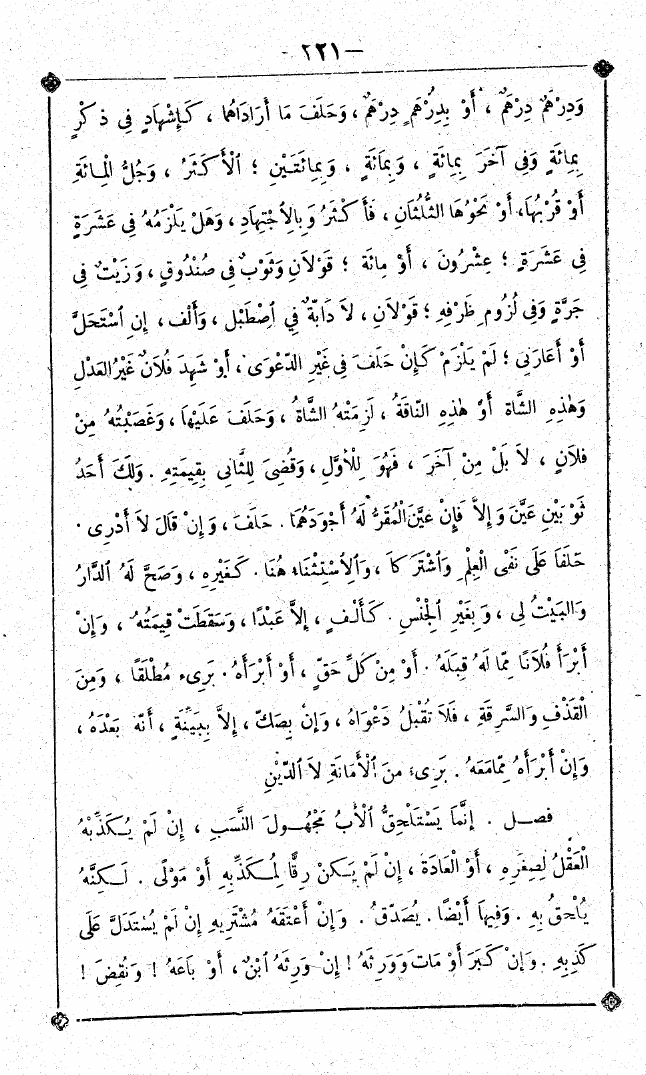 — ٢٢١ -
وَدِرْهَمٌ دِرْهَمٌ ، أَوْ بِدِرْهَمٍ دِرْهَمٌ ، وَحَلَفَ مَا أَرَادَاهُمَا ، كَإِشْهَادٍ فِي ذِكْرٍ
بِمِائَةٍ وَفِي آخَرَ بِمِائَةٍ ، وَبِمَائَةٍ ، وَبِمِائَتَيْنِ ؛ ٱلْأَكْثَرُ ، وَجُلُّ الْمِائَةِ
أَوْ قُرْبُهَا، أَوْ نَحْوُهَا الثُّلُثَانِ ، فَأَكْثَرُ وَبِالِاجْتِهَادِ ، وَهَلْ يَلْزَمُهُ فِي عَشَرَةٍ
فِي عَشَرَةٍ ؛ عِشْرُونَ ، أَوْ مِائَة ؛ قَوْلَانِ وَثَوْبٌ فِي صُنْدُوقٍ ، وَزَيْتٌ فِي
جَرَّةٍ وَفِي لُزُومِ ظَرْفِهِ ؛ قَوْلَانِ ، لَا دَابَّةٌ فِي اِصْطَبْل ، وَأَلْف ، إِنِ ٱسْتَحَلَّ
أَوْ أَعَارَنِي ؛ لَمْ يَلْزَمْ كَإِنْ حَلَفَ فِي غَيْرِ الدَّعْوَى ، أَوْ شَهِدَ فُلَانٌ غَيْرُ الْعَدْلِ
وَهٰذِهِ الشَّاة أَوْ هٰذِهِ النَّاقَةُ ، لَزِمَتْهُ الشَّاةُ ، وَحَلَفَ عَلَيْهَا ، وَغَصَبْتُهُ مِنْ
فُلَانٍ ، لَا بَلْ مِنْ آخَرَ ، فَهُوَ لِلْأَوَّلِ ، وَقُضِيَ لِلثَّانِي بِقِيمَتِهِ . وَلَكَ أَحَدُ
ثَوْبَيْنِ عَيَّنَ وَإِلَّا فَإِنْ عَيَّنَ الْمُقَرُّ لَهُ أَجْوَدَهُمَا . حَلَفَ ، وَإِنْ قَالَ لَا أَدْرِي .
حَلَفَا عَلَى نَفْيِ الْعِلْمِ وَٱشْتَرَكَا ، وَٱلِاسْتِثْنَاءُ هُنَا . كَغَيْرِهِ ، وَصَحَّ لَهُ ٱلدَّارُ
وَالْبَيْتُ لِي ، وَبِغَيْرِ ٱلْجِنْسِ . كَأَلْفٍ ، إِلَّا عَبْدًا ، وَسَقَطَتْ قِيمَتُهُ ، وَإِنْ
أَبْرَأَ فُلَانًا مِمَّا لَهُ قِبَلَهُ . أَوْ مِنْ كُلِّ حَقٍّ ، أَوْ أَبْرَأَهُ . بَرِىءَ مُطْلَقًا ، وَمِنَ
الْقَذْفِ وَالسَّرِقَةِ ، فَلَا تُقْبَلُ دَعْوَاهُ ، وَإِنْ بِصَكّ ، إِلَّا بِبَيِّنَةٍ ، أَنَّهُ بَعْدَهُ ،
وَإِنْ أَبْرَأَهُ مِمَّا مَعَهُ . بَرِىءَ مِنَ ٱلْأَمَانَةِ لَا ٱلدَّيْنِ
فصــل . إِنَّمَا يَسْتَلْحِقُ ٱلْأَبُ مَجْهُولَ النَّسَبِ ، إِنْ لَمْ يُكَذِّبْهُ
الْعَقْلُ لِصِغَرِهِ ، أَوْ الْعَادَة ، إِنْ لَمْ يَكُنْ رِقًّا لِمُكَذِّبِهِ أَوْ مَوْلًى . لَكِنَّهُ
يُلْحَقُ بِهِ . وَفِيهَا أَيْضًا . يُصَدَّقُ . وَإِنْ أَعْتَقَهُ مُشْتَرِيهِ إِنْ لَمْ يُسْتَدَلَّ عَلَى
كَذِبِهِ . وَإِنْ كَبِرَ أَوْ مَاتَ وَوَرِثَهُ ! إِنْ وَرِثَهُ ٱبْنٌ ، أَوْ بَاعَهُ ! وَنُقِضَ !